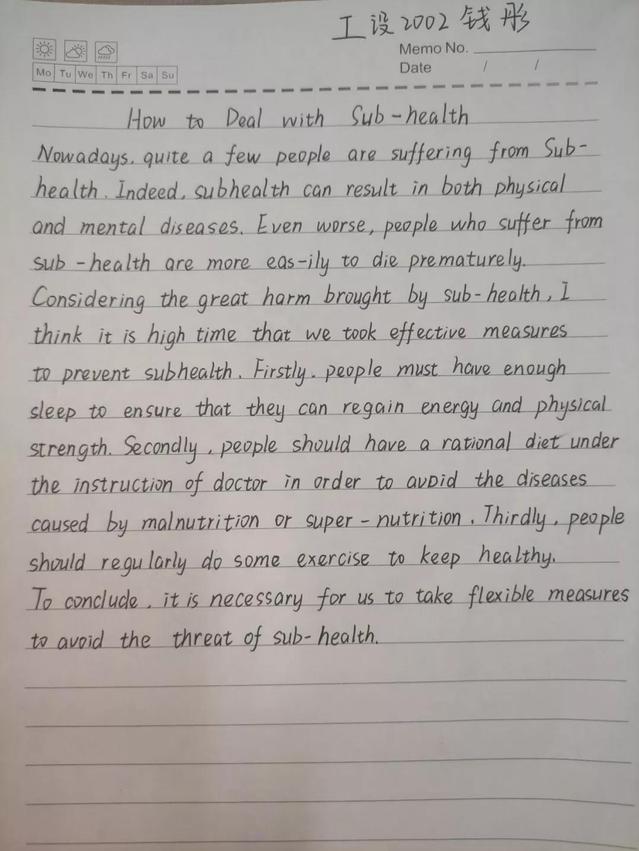 工设2002 钱彤
Memo No.
Mo Tu We Th Fr Sa Su
Date / /
How to Deal with Sub-health
Nowadays, quite a few people are suffering from Sub-
health. Indeed, subhealth can result in both physical
and mental diseases. Even worse, people who suffer from
sub-health are more eas-ily to die prematurely.
Considering the great harm brought by sub-health, I
think it is high time that we took effective measures
to prevent subhealth. Firstly, people must have enough
sleep to ensure that they can regain energy and physical
strength. Secondly, people should have a rational diet under
the instruction of doctor in order to avoid the diseases
caused by malnutrition or super-nutrition. Thirdly, people
should regularly do some exercise to keep healthy.
To conclude, it is necessary for us to take flexible measures
to avoid the threat of sub-health.